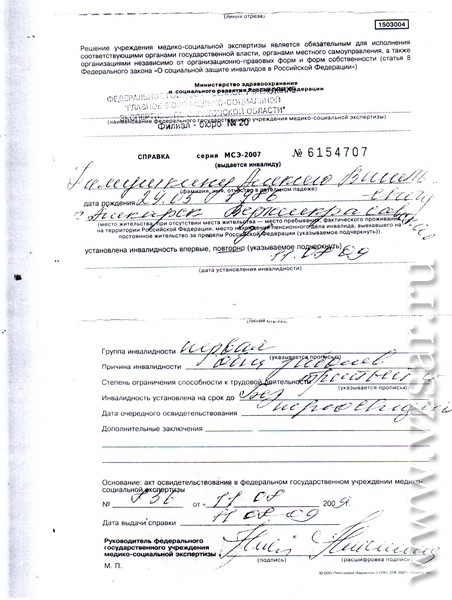 (линия отреза)
1503004
Решение учреждения медико-социальной экспертизы является обязательным для исполнения
соответствующими органами государственной власти, органами местного самоуправления, а также
организациями независимо от организационно-правовых форм и форм собственности (статья 8
Федерального закона «О социальной защите инвалидов в Российской Федерации»)
Министерство здравоохранения
и социального развития Российской Федерации
"ГЛАВНОЕ БЮРО МЕДИКО-СОЦИАЛЬНОЙ
ОБЛАСТИ"
(наименование федерального государственного учреждения медико-социальной экспертизы)
Филиал - бюро № 20
СПРАВКА серия МСЭ-2007 № 6154707
(выдается инвалиду)
(фамилия, имя, отчество в дательном падеже)
дата рождения
(место жительства, при отсутствии места жительства — место пребывания, фактического проживания
на территории Российской Федерации, место нахождения пенсионного дела инвалида, выехавшего на
постоянное жительство за пределы Российской Федерации (указываемое подчеркнуть))
установлена инвалидность впервые, повторно (указываемое подчеркнуть)
11.08.09
(дата установления инвалидности)
(линия отреза)
Группа инвалидности первая
(указывается прописью)
Причина инвалидности
Степень ограничения способности к трудовой деятельности третья
(указывается прописью)
Инвалидность установлена на срок до Без
Дата очередного освидетельствования
Дополнительные заключения
Основание: акт освидетельствования в федеральном государственном учреждении медико-
социальной экспертизы
№ от 11 08 2009
Дата выдачи справки 11-08-09
Руководитель федерального
государственного учреждения
медико-социальной экспертизы
(подпись) (расшифровка подписи)
М. П.
www.tvsar.ru